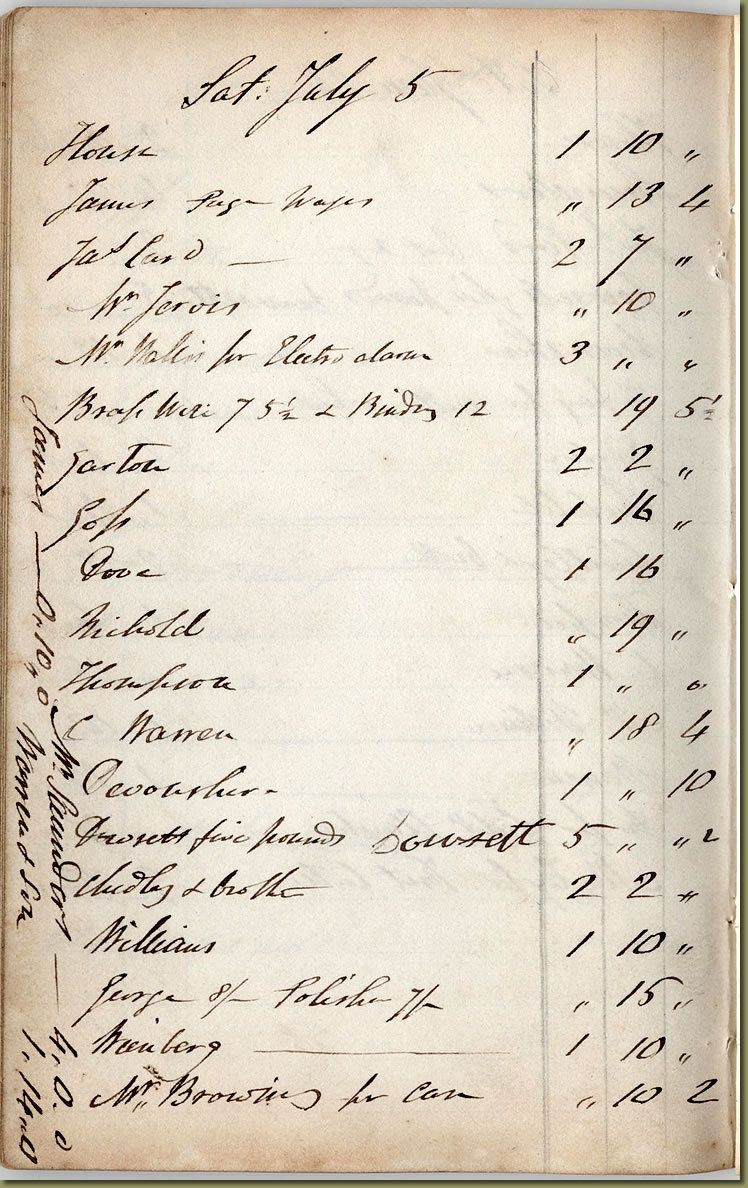 Sat. July 5
House 1 10 „
James Page Wages „ 13 4
Jas Card — 2 7 „
Mr Jervis „ 10 „
Mr Wallis for Electro alarm 3 „ „
Brass Wire 7 5½ & Binding 12 19 5½
Garton 2 2 „
Goss 1 16 „
Dove 1 16
Nichold „ 19 „
Thompson 1 „ „
C Warren „ 18 4
Devonsher- 1 „ 10
Dowsett five pounds Dowsett 5 „ „ 2
Chidley & brother 2 2 „
Williams 1 10 „
George 8/- Polisher 7/- „ 15 „
Wienberg — 1 10 „
Mr. Browning for Case „ 10 2
James — 0,,10,,0 Mr. Saunders — 4,,0,,0
Warren & Son 1,,14,,0